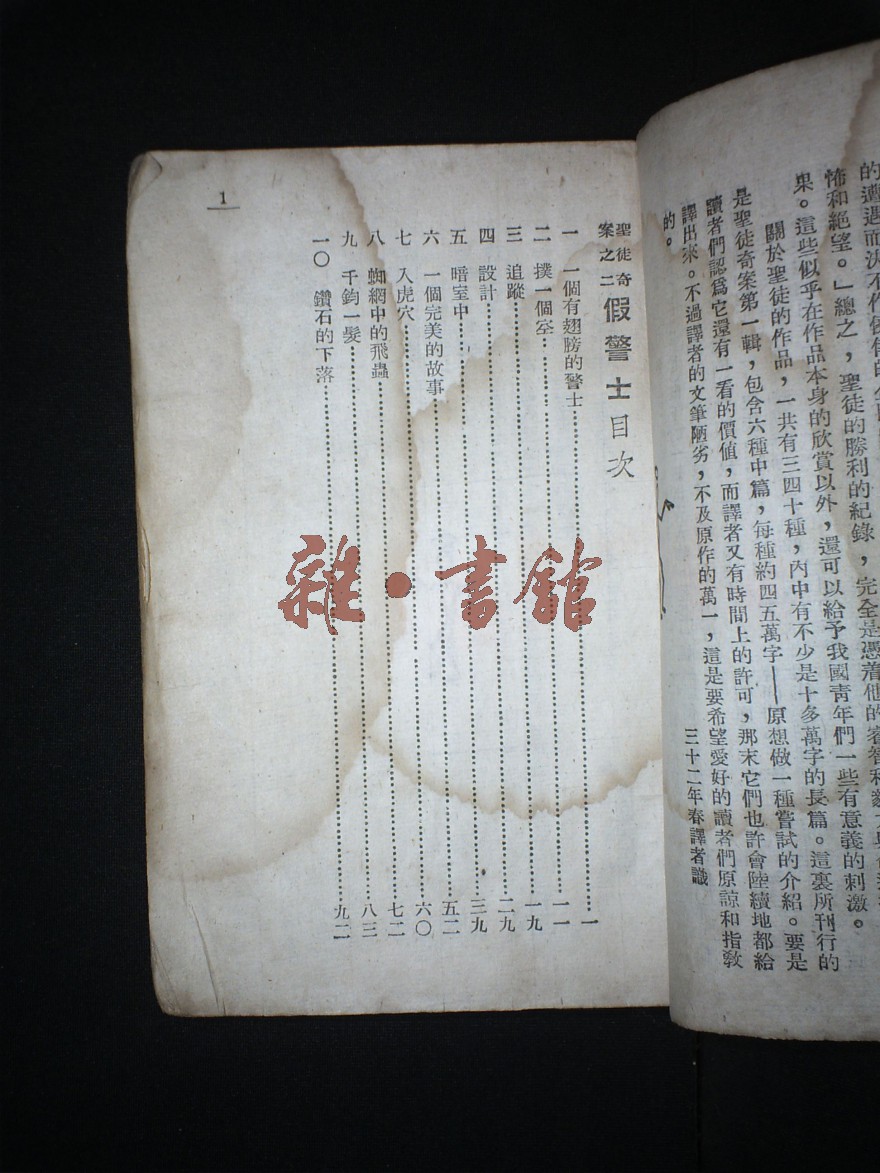 的遭遇而決不作
怖和絕望。」總之，聖徒的勝利的紀錄，完全是憑着他的睿智和毅力
果。這些似乎在作品本身的欣賞以外，還可以給予我國青年們一些有意義的刺激。
關於聖徒的作品，一共有三四十種，內中有不少是十多萬字的長篇。這裏所刊行的
是聖徒奇案第一輯，包含六種中篇，每種約四五萬字——原想做一種嘗試的介紹。要是
讀者們認爲它還有一看的價値，而譯者又有時間上的許可，那末它們也許會陸續地都給
譯出來。不過譯者的文筆陋劣，不及原作的萬一，這是要希望愛好的讀者們原諒和指敎
的。
三十二年春譯者識
聖徒奇案之二 假警士目次
一 一個有翅膀的警士……一
二 撲一個空……一一
三 追蹤……一九
四 設計……二九
五 暗室中……三九
六 一個完美的故事……五二
七 入虎穴……六〇
八 蜘網中的飛蟲……七二
九 千鈞一髮……八三
一〇 鑽石的下落……九二
1
雜·書館